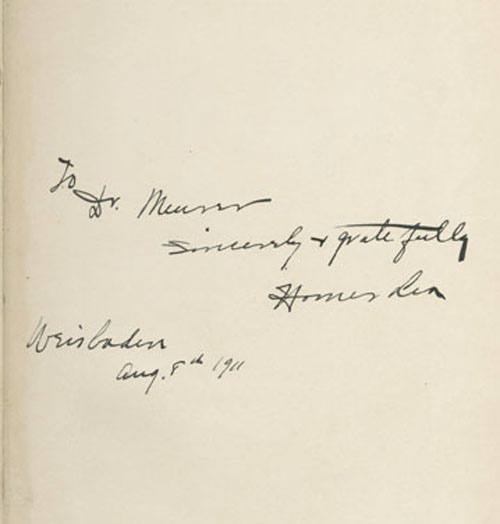 To
Dr. Meurer
Sincerely + gratefully
Homer Lea
Weisbaden
Aug. 8th 1911